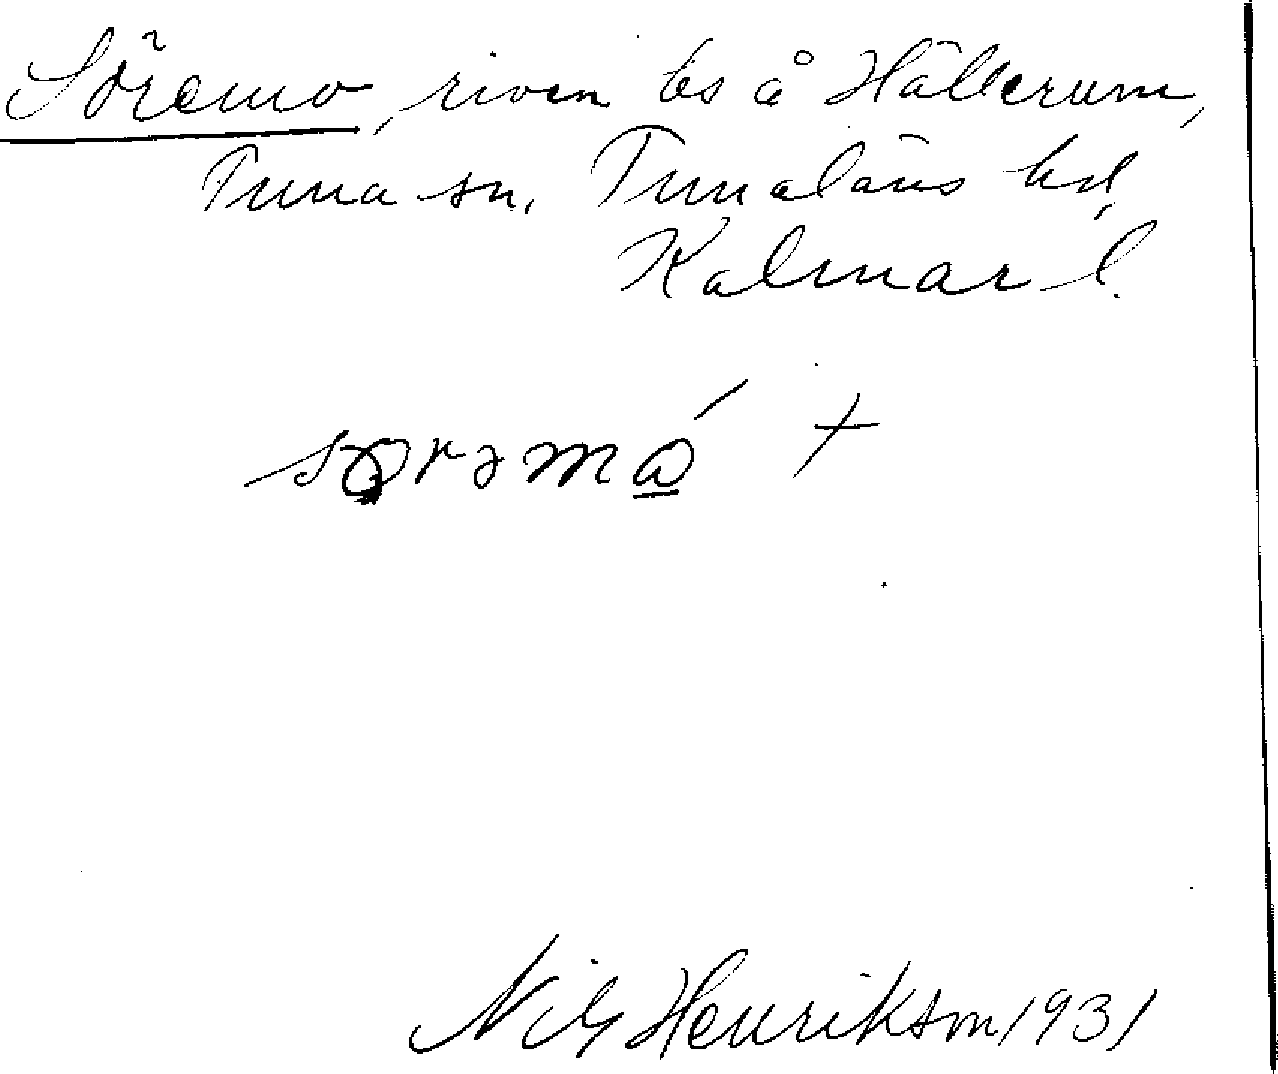 Söremo, riven bs å Hällerum,
Tuna sn, Tunaläns hd,
Kalmar l.
sɷrəmɷ́ +
Nils Henrikson 1931